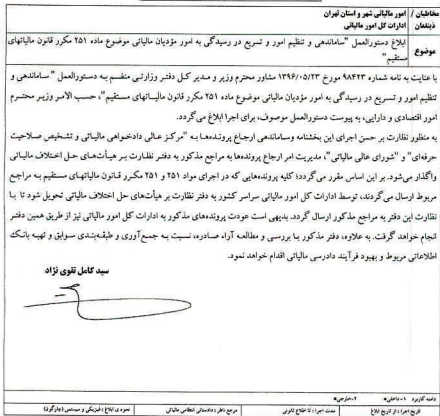 مخاطبان / ذینفعان
امور مالیاتی شهر و استان تهران
ادارات کل امور مالیاتی
موضوع
ابلاغ دستورالعمل "ساماندهی و تنظیم امور و تسریع در رسیدگی به امور مؤدیان مالیاتی موضوع ماده ۲۵۱ مکرر قانون مالیاتهای
مستقیم"
با عنایت به نامه شماره ۹۸۴۲۳ مورخ ۱۳۹۶/۰۵/۲۳ مشاور محترم وزیر و مدیر کل دفتر وزارتی منضم به دستورالعمل "ساماندهی و
تنظیم امور و تسریع در رسیدگی به امور مؤدیان مالیاتی موضوع ماده ۲۵۱ مکرر قانون مالیاتهای مستقیم"، حسب الامر وزیر محترم
امور اقتصادی و دارایی، به پیوست دستورالعمل موصوف، برای اجرا ابلاغ می‌گردد.
به منظور نظارت بر حسن اجرای این بخشنامه وساماندهی ارجاع پرونده‌ها به "مرکز عالی دادخواهی مالیاتی و تشخیص صلاحیت
حرفه‌ای" و "شورای عالی مالیاتی"، مدیریت امر ارجاع پرونده‌ها به مراجع مذکور به دفتر نظارت بر هیأت‌های حل اختلاف مالیاتی
واگذار می‌شود. بر این اساس مقرر می‌گردد؛ کلیه پرونده‌هایی که در اجرای مواد ۲۵۱ و ۲۵۱ مکرر قانون مالیاتهای مستقیم به مراجع
مربوط ارسال می‌گردند، توسط ادارات کل امور مالیاتی سراسر کشور به دفتر نظارت بر هیأت‌های حل اختلاف مالیاتی تحویل شود تا با
نظارت این دفتر به مراجع مذکور ارسال گردد. بدیهی است عودت پرونده‌های مذکور به ادارات کل امور مالیاتی نیز از طریق همین دفتر
انجام خواهد گرفت. به علاوه، دفتر مذکور با بررسی و مطالعه آراء صادره، نسبت به جمع‌آوری و طبقه‌بندی سوابق و تهیه بانک
اطلاعاتی مربوط و بهبود فرآیند دادرسی مالیاتی اقدام خواهد نمود.
سید کامل تقوی نژاد
دامنه کاربرد ۱- داخلی* ۲-خارجی*
تاریخ اجرا : از تاریخ ابلاغ
مدت اجرا : تا اطلاع ثانوی
مرجع ناظر : دادستانی انتظامی مالیاتی
نحوه ی ابلاغ : فیزیکی و سیستمی (چارگون)